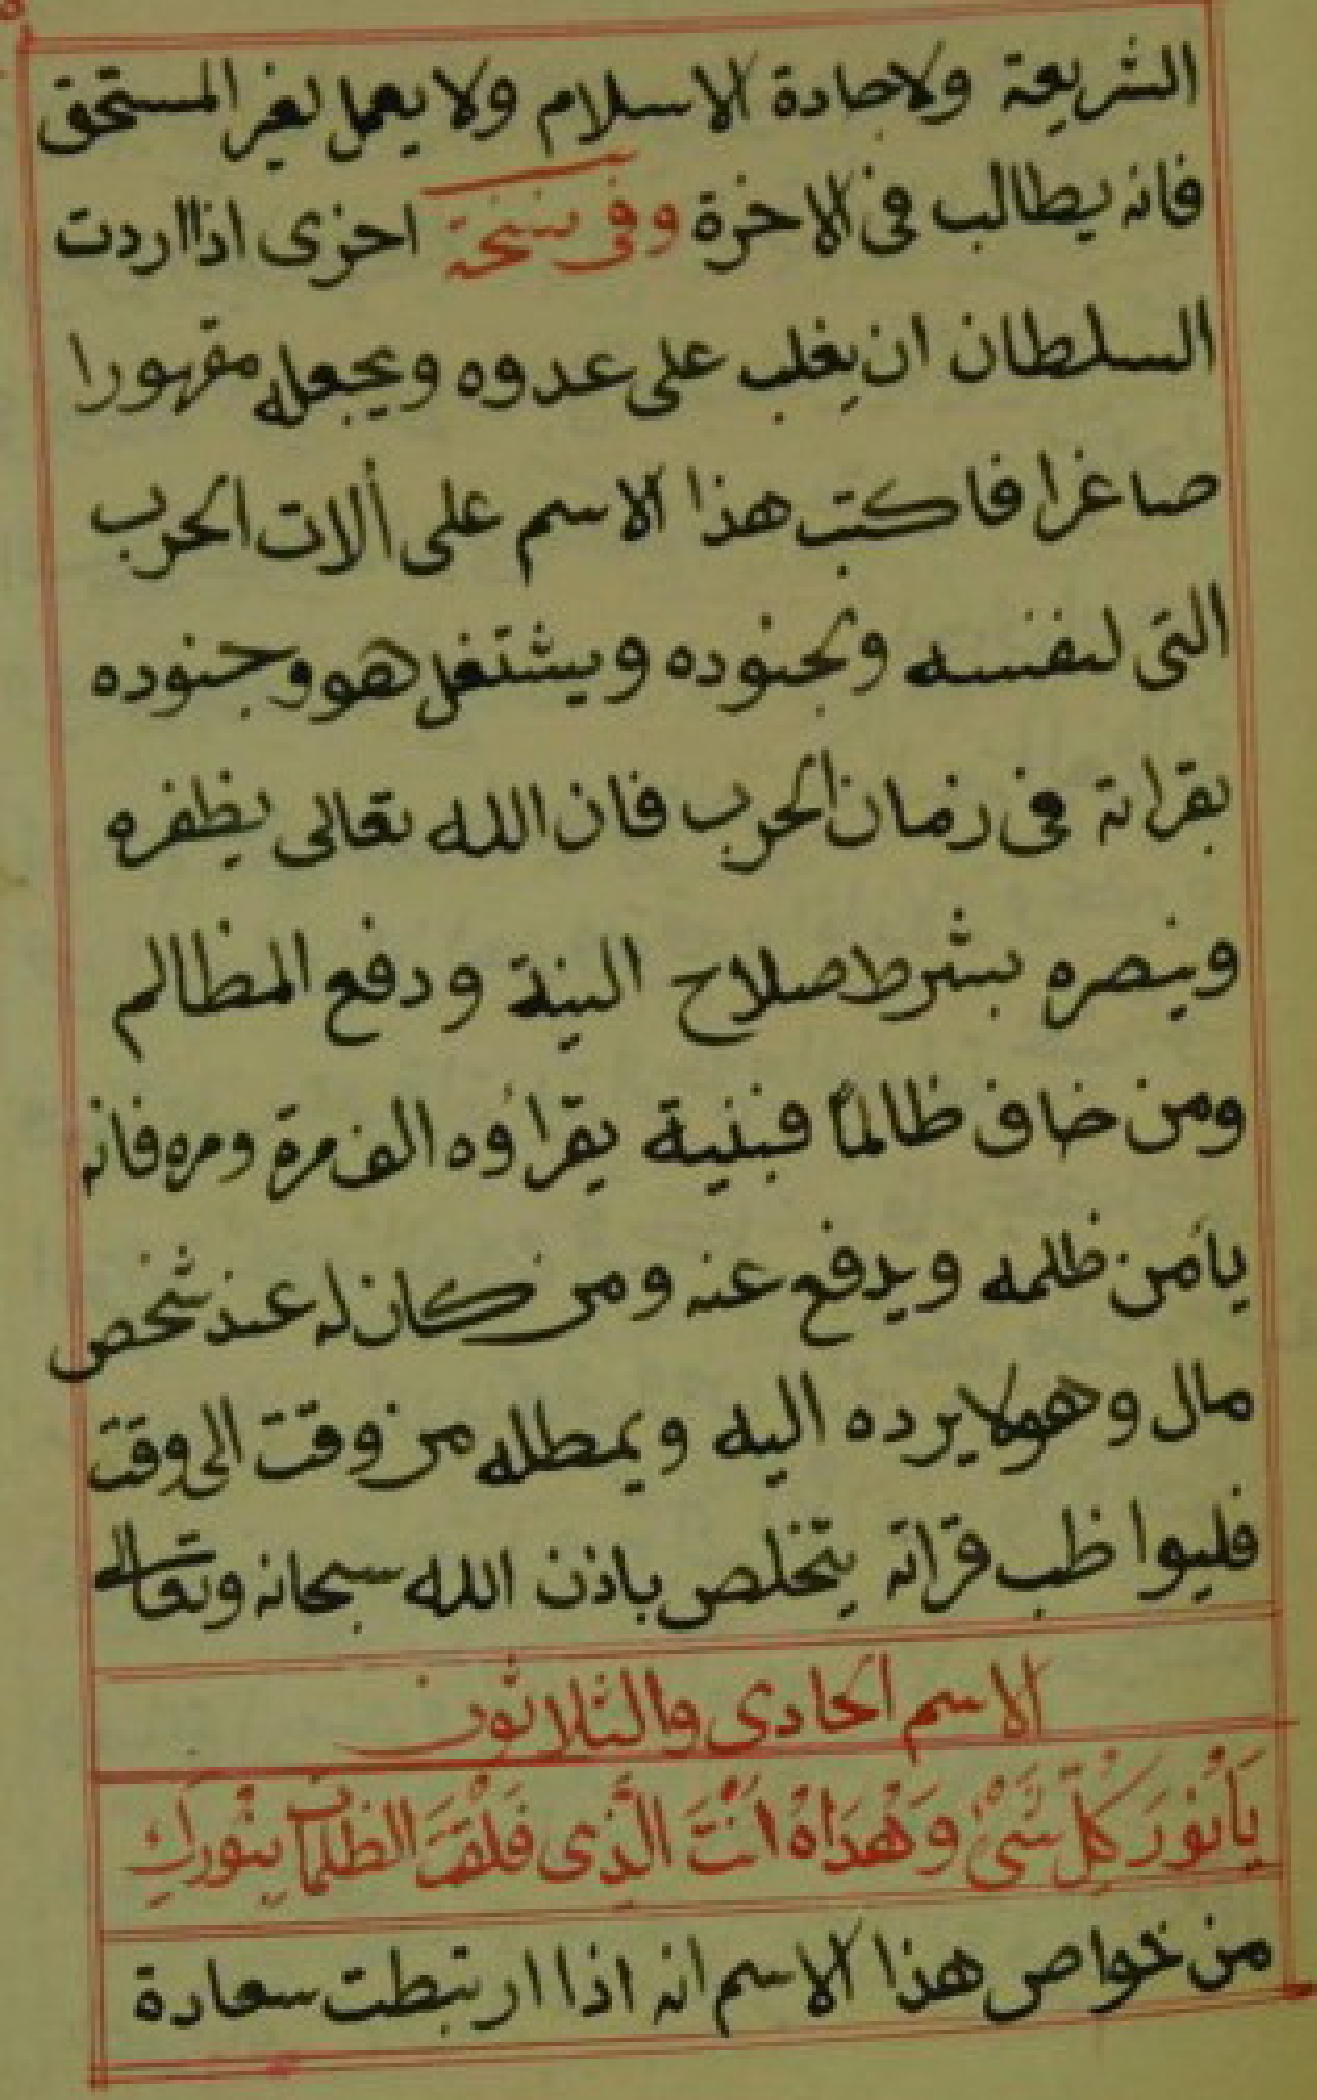 الشريعة ولاجادة الاسلام ولا يعمل لغير المستحق
فانه يطالب فى الاخرة وفى نسخة اخرى اذا اردت
السلطان ان يغلب على عدوه ويجعله مقهورا
صاغرا فاكتب هذا الاسم على ألات الحرب
التى لنفسه ولجنوده ويشتغل هو وجنوده
بقراته فى زمان الحرب فان الله تعالى يظفره
وينصره بشرط صلاح النية ودفع المظالم
ومن خاف ظالماً فبنية يقراؤه الف مرة ومره فانه
يأمن ظلمه ويدفع عنه ومن كان له عند شخص
مال وهو لا يرده اليه ويمطله من وقت الى وقت
فليواظب قراته يتخلص باذن الله سبحانه وتعالى
الاسم الحادى والثلاثون
يَانُورَ كُلِّ شَىْءٍ وَهُدَاهُ اَنْتَ الَّذِى فَلَقَ الظلمات بِنُورِكَ
من خواص هذا الاسم انه اذا ارتبطت سعادة